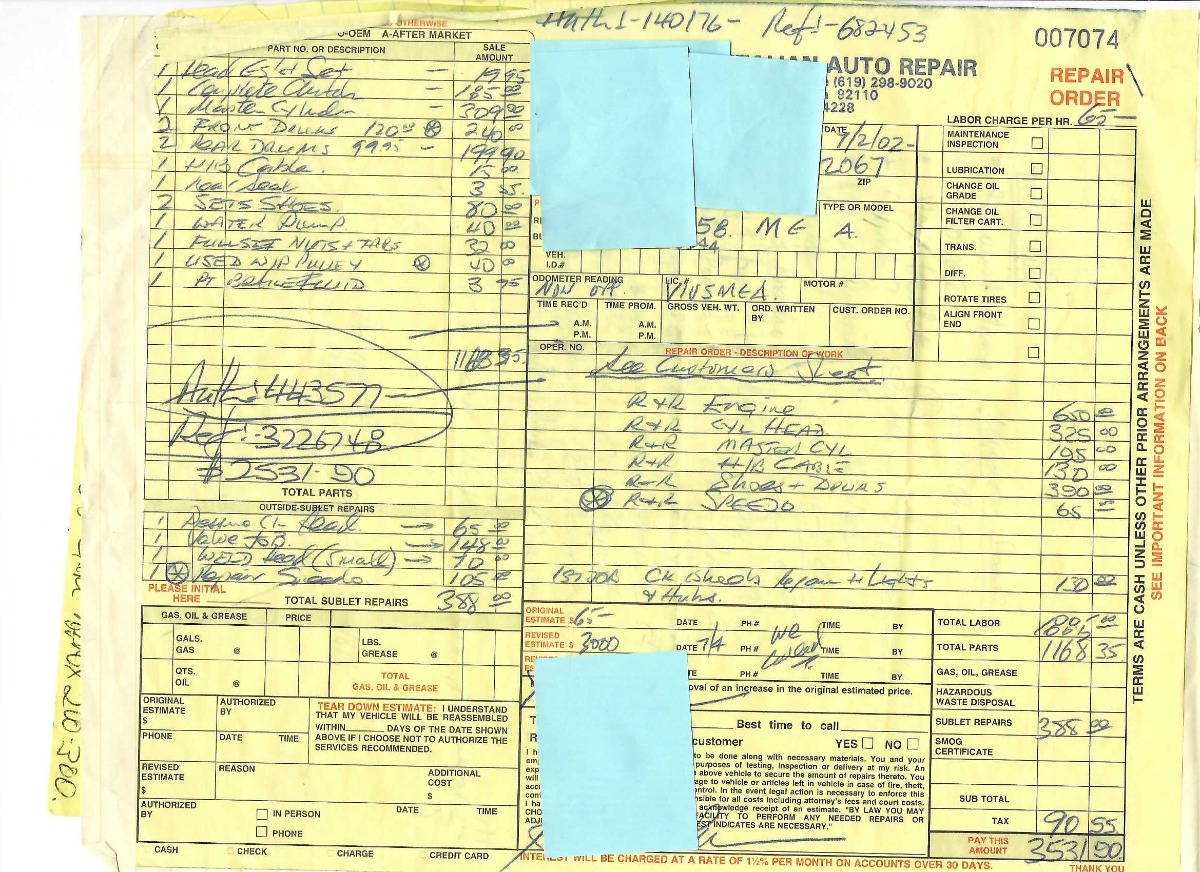 Auth:-140176- Ref:-682453
007074
AUTO REPAIR
(619) 298-9020
92110
4228
REPAIR ORDER
LABOR CHARGE PER HR. 65-
OTHERWISE
O-OEM A-AFTER MARKET
PART NO. OR DESCRIPTION SALE AMOUNT
1 Head Gs't Set - 19 95
1 Complete Clutch - 185 00
1 Master Cylinder - 309 00
2 FRONT DRUMS 120 00 240 00
2 REAR DRUMS 99.95 - 199 90
1 H/B Cable. 15 00
1 Rear Seal 3 55
2 SETS SHOES. 80 00
1 WATER PUMP 40 00
1 FULLSET NUTS + TABS 32 00
1 USED W/P PULLEY 40 00
1 PT BRAKE FLUID 3 95
1168 35
Auth:-443577
Ref:-3226748
$2531-90
TOTAL PARTS
OUTSIDE-SUBLET REPAIRS
1 Pressure Ck Head. → 65 00
1 Valve JOB. → 148 00
1 WELD Head (Small) → 70 00
1 Repair Speedo. 105 00
PLEASE INITIAL HERE
TOTAL SUBLET REPAIRS 388 00
GAS, OIL & GREASE PRICE
GALS. GAS @
LBS. GREASE @
QTS. OIL @
TOTAL GAS, OIL & GREASE
ORIGINAL ESTIMATE $
AUTHORIZED BY
PHONE DATE TIME
TEAR DOWN ESTIMATE: I UNDERSTAND
THAT MY VEHICLE WILL BE REASSEMBLED
WITHIN DAYS OF THE DATE SHOWN
ABOVE IF I CHOOSE NOT TO AUTHORIZE THE
SERVICES RECOMMENDED.
REVISED ESTIMATE $
REASON
ADDITIONAL COST $
AUTHORIZED BY
IN PERSON
PHONE
DATE TIME
CASH CHECK CHARGE CREDIT CARD
DATE 7/2/02-
2067
ZIP
TYPE OR MODEL
58. MG A.
VEH. I.D.#
ODOMETER READING LIC.# MOTOR #
TIME REC'D TIME PROM. GROSS VEH. WT. ORD. WRITTEN BY CUST. ORDER NO.
A.M. A.M.
P.M. P.M.
MAINTENANCE INSPECTION
LUBRICATION
CHANGE OIL GRADE
CHANGE OIL FILTER CART.
TRANS.
DIFF.
ROTATE TIRES
ALIGN FRONT END
OPER. NO. REPAIR ORDER - DESCRIPTION OF WORK
See Customers Sheet
R+R Engine 650 00
R+R CYL HEAD. 325 00
R+R MASTER CYL 195 00
R+R H/B CABLE 130 00
R+R Shoes + DRUMS 390 00
R+R SPEEDO 65
CK Wheels + Lights 130 00
& Hubs.
ORIGINAL ESTIMATE $ 65- DATE PH # TIME BY
REVISED ESTIMATE $ 3000 DATE 7/4 PH # We called TIME BY
DATE PH # TIME BY
oval of an increase in the original estimated price.
Best time to call
customer YES NO
to be done along with necessary materials. You and your
purposes of testing, inspection or delivery at my risk. An
above vehicle to secure the amount of repairs thereto. You
age to vehicle or articles left in vehicle in case of fire, theft,
ntrol. In the event legal action is necessary to enforce this
sible for all costs including attorney's fees and court costs.
acknowledge receipt of an estimate. "BY LAW YOU MAY
FACILITY TO PERFORM ANY NEEDED REPAIRS OR
EST INDICATES ARE NECESSARY."
INTEREST WILL BE CHARGED AT A RATE OF 1½% PER MONTH ON ACCOUNTS OVER 30 DAYS.
TOTAL LABOR
TOTAL PARTS 1168 35
GAS, OIL, GREASE
HAZARDOUS WASTE DISPOSAL
SUBLET REPAIRS 388 00
SMOG CERTIFICATE
SUB TOTAL
TAX 90 55
PAY THIS AMOUNT 3531 90
THANK YOU
TERMS ARE CASH UNLESS OTHER PRIOR ARRANGEMENTS ARE MADE
SEE IMPORTANT INFORMATION ON BACK